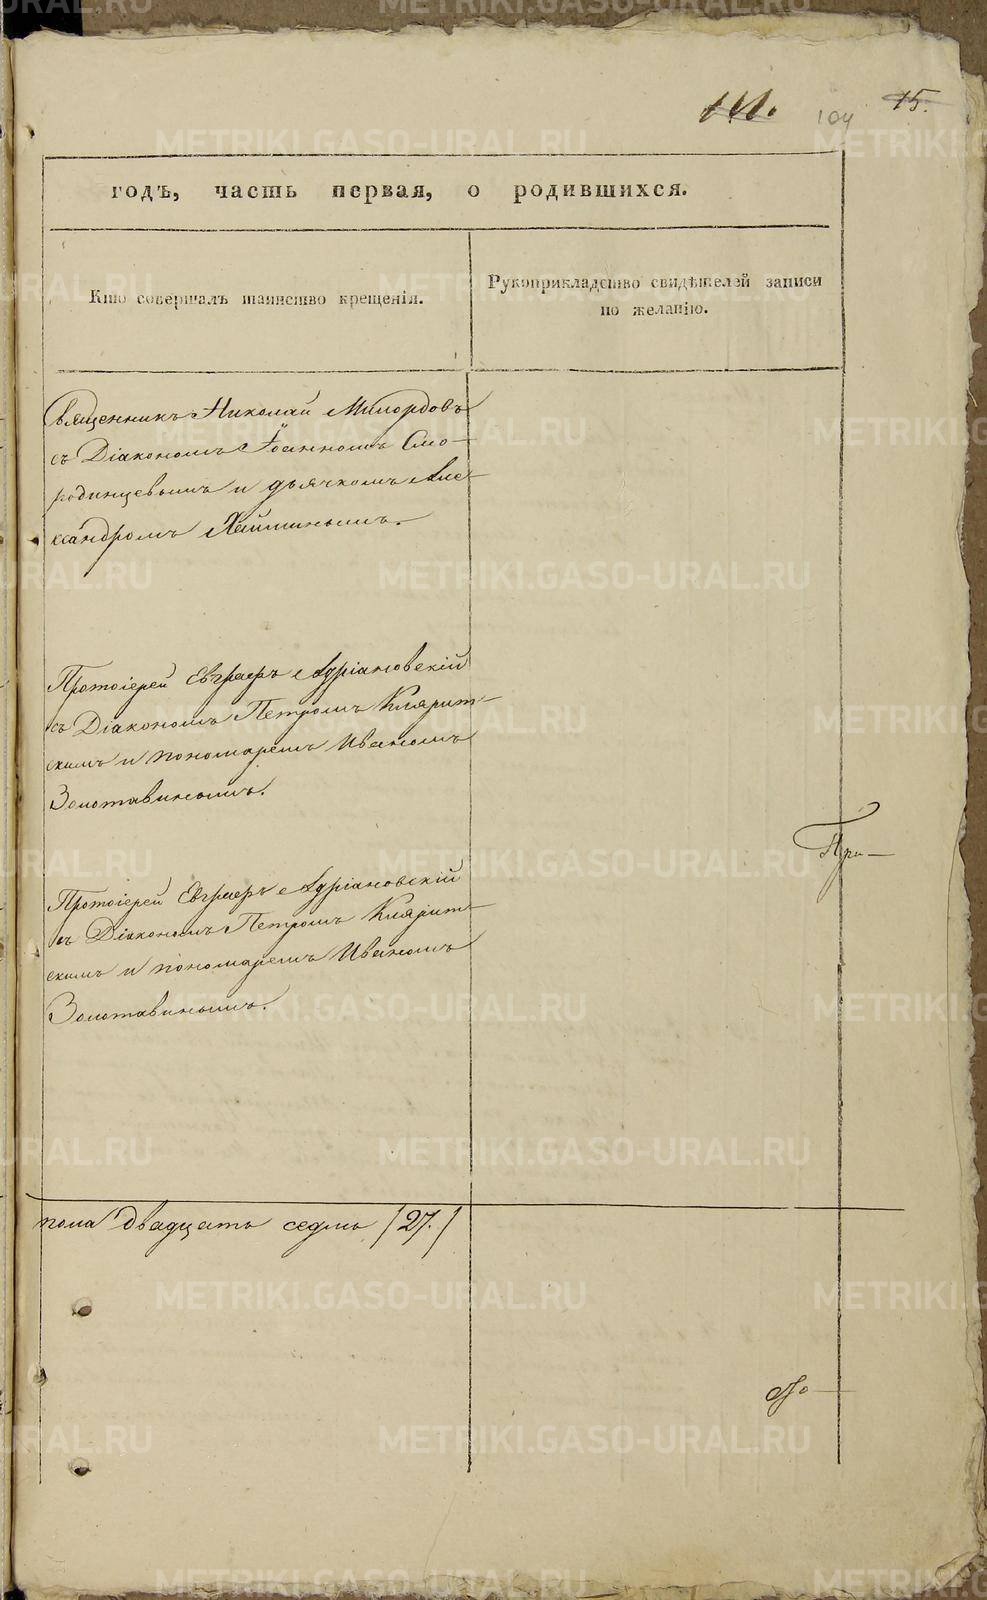 104 15.
годъ, часть первая, о родившихся.
Кто совершалъ таинство крещенія.
Рукоприкладство свидѣтелей записи
по желанію.
Священникъ Николай Милордовъ
съ Діакономъ Іоанномъ Смо-
родинцевымъ и дьячкомъ Але-
ксандромъ Хайминымъ.
Протоіерей Евграфъ Адріановскій
съ Діакономъ Петромъ Кляритскимъ
скимъ и пономаремъ Иваномъ
Золотавинымъ.
Протоіерей Евграфъ Адріановскій
съ Діакономъ Петромъ Клярит-
скимъ и пономаремъ Иваномъ
Золотавинымъ.
При-
пола двадцать седмь /27./
METRIKI.GASO-URAL.RU